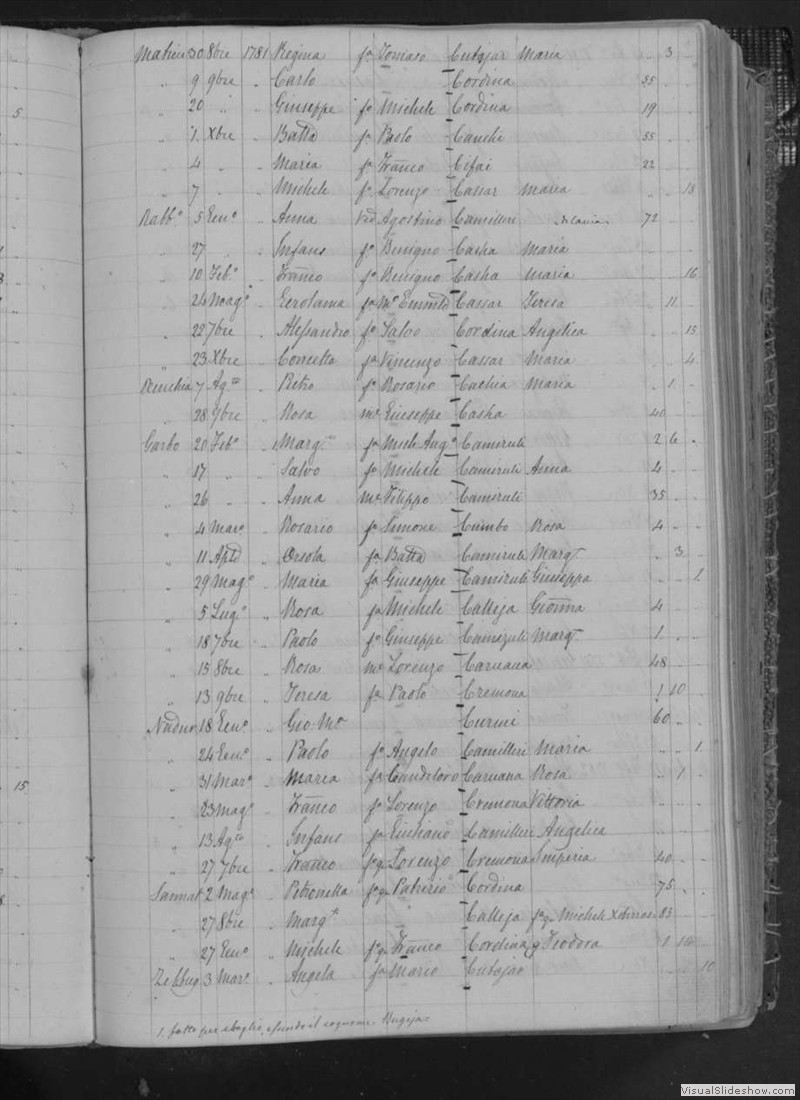 5
15
Matrice 30 8bre 1781 Regina fa Tomaso Cutajar Maria 3
" 9 9bre " Carlo Cordina 55
" 20 " " Giuseppe fo Michele Cordina 19
" 1 Xbre " Batta fo Paolo Cauchi 55
" 4 " " Maria fa Franco Cifai 22
" 7 " Michele fo Lorenzo Cassar Maria 18
Rabbo 5 Eeno " Anna Agostino Camilleri 72
" 27 " Infans fo Benigno Casha Maria
" 10 Febo " Franco fo Benigno Casha Maria 16
" 24 Mago " Gerolama fa Cassar Teresa 11
" 22 7bre " Alessandro fo Salvo Cordina Angelica 15
" 23 Xbre " Concetta fa Vincenzo Cassar Maria 4
Xeuchia 7 Ago " Pietro fo Rosario Cachia Maria 1
" 28 9bre " Rosa me Giuseppe Casha 40
Garbo 20 Febo " Margta fa Mich Ango Camizuli 2 6
" 17 " " Salvo fo Michele Camizuli Anna 4
" 26 " " Anna me Filippo Camizuli 35
" 4 Maro " Rosario fo Simone Cumbo Rosa 4
" 11 Aple " Orsola fa Batta Camizuli Margta 3
" 29 Mago " Maria fa Giuseppe Camizuli Giuseppa 1
" 5 Lugo " Rosa fa Michele Calleja Gionna 4
" 18 7bre " Paolo fo Giuseppe Camizuli Margta 1
" 15 8bre " Rosa me Lorenzo Caruana 48
" 13 9bre " Teresa fa Paolo Cremona 1 10
Nadur 18 Eeno " Gio. Ma Curmi 60
" 24 Eeno " Paolo fo Angelo Camilleri Maria 1
" 31 Maro " Maria fa Candeloro Caruana Rosa 1
" 23 Mago " Franco fo Lorenzo Cremona Vittoria
" 13 Ago " Infans fo Giuliano Camilleri Angelica
" 27 7bre " Franco fo q. Lorenzo Cremona Imperia 40
Sannat 2 Mago " Petronella fa q. Patrizio Cordina 75
" 27 8bre " Margta " Calleja fa q. Michele 83
" 27 Eeno " Michele fo q. Franco Cordina q Teodora 1
Zebbug 3 Maro " Angela fa Mario Cutajar 10
1. fatto per sbaglio, essendo il cognome Bugeja
VisualSlideshow.com